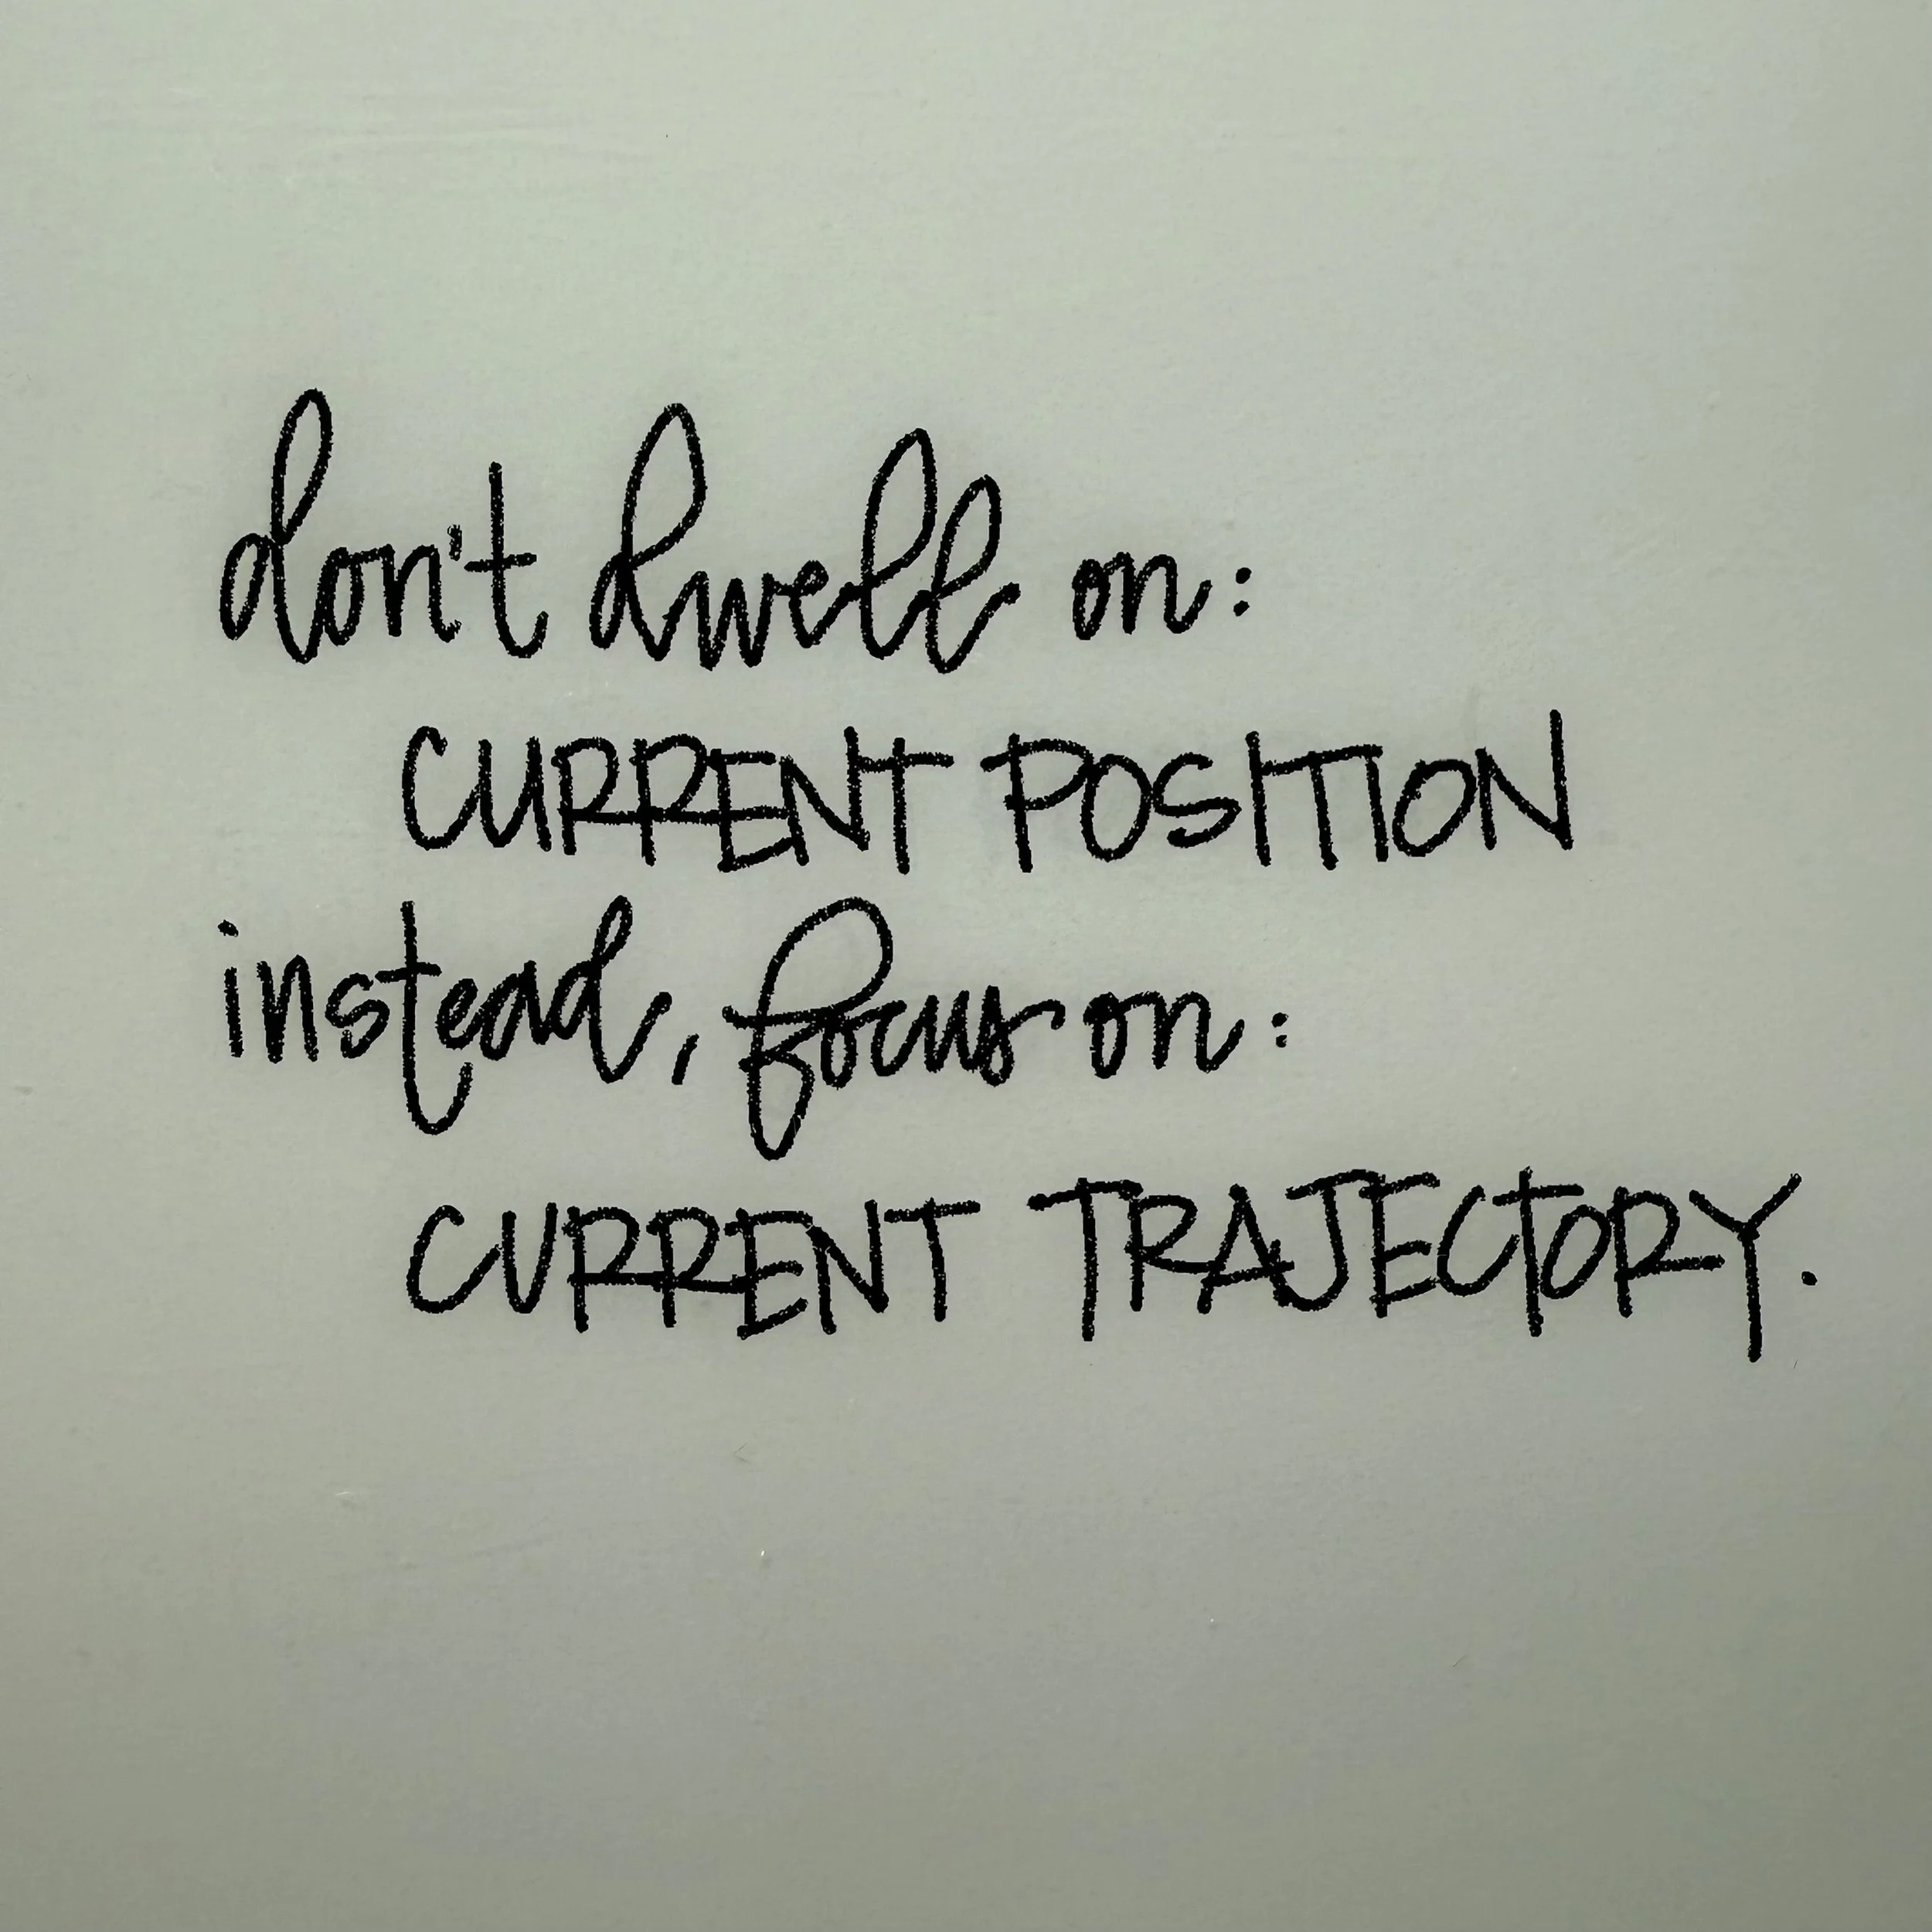 don't dwell on:
CURRENT POSITION
instead, focus on:
CURRENT TRAJECTORY.